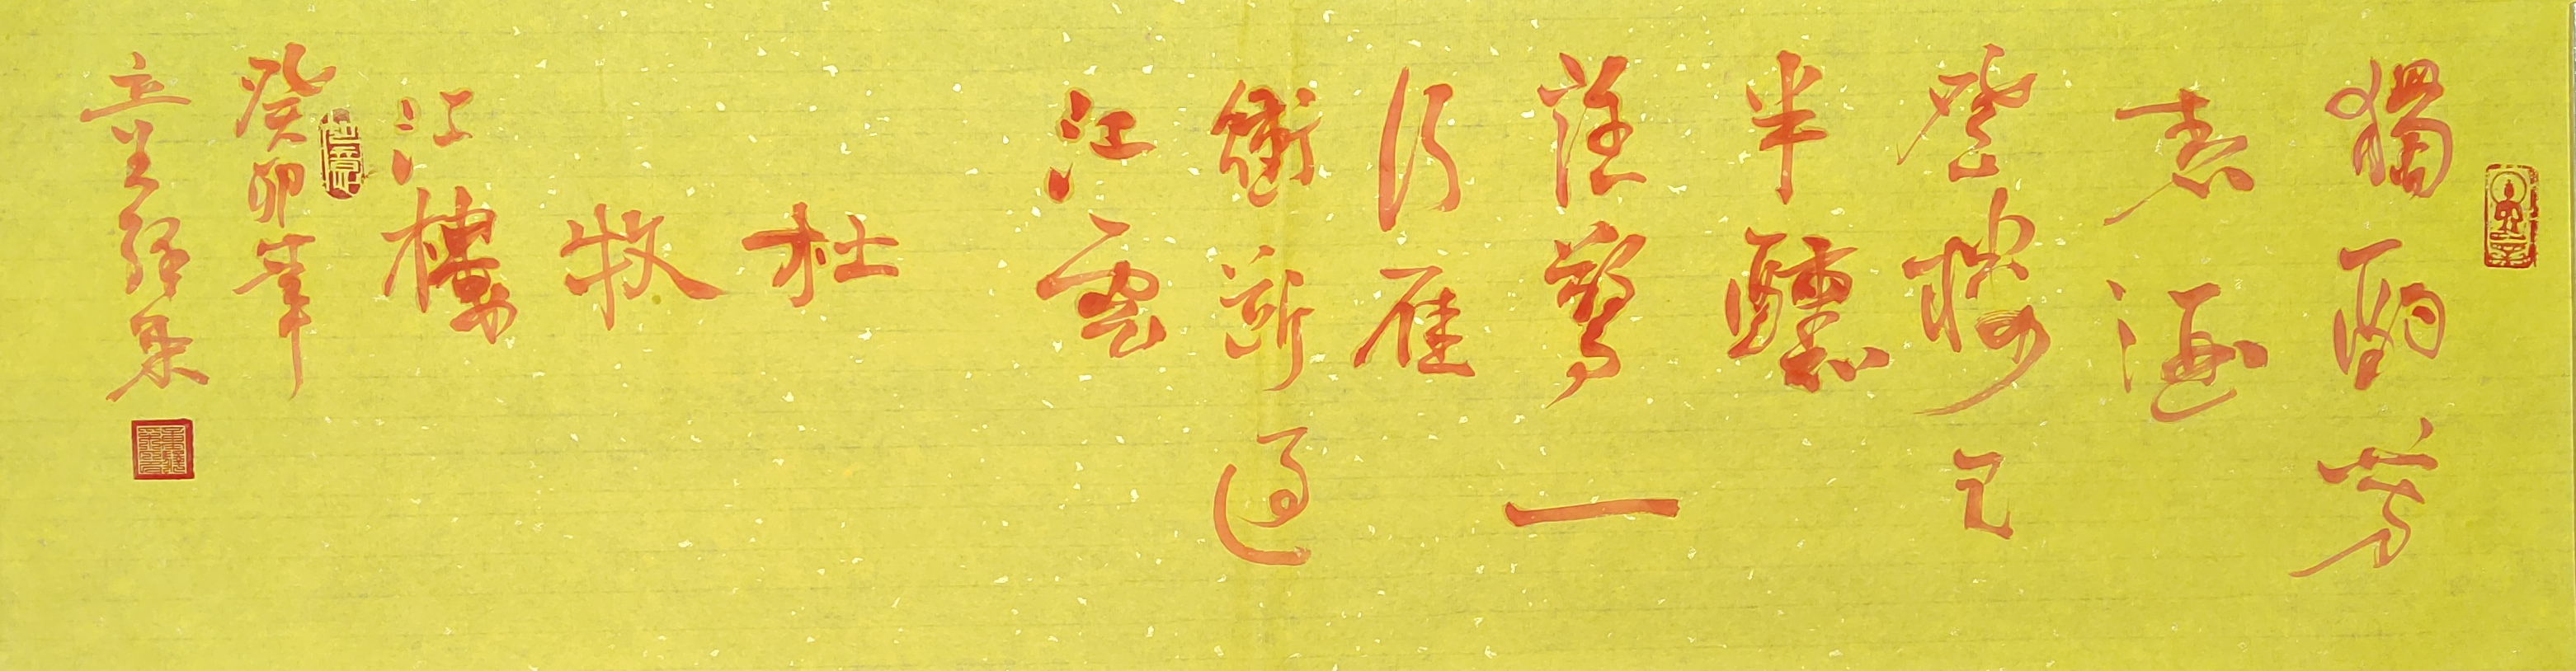 獨酌芳
春酒
登樓已
半醺
誰驚一
行雁
衝斷過
江雲
杜
牧
江樓
癸卯年